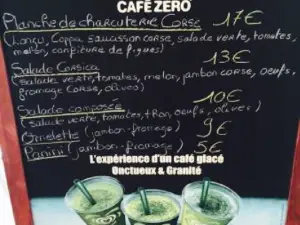 CAFÉ ZERO
Planche de charcuterie Corse 17€
(Lonzu, Coppa, saucisson corse, salade verte, tomates,
melon, confiture de figues)
13€
Salade Corsica
(salade verte, tomates, melon, jambon corse, oeufs,
fromage corse, olives)
10€
Salade composée
(salade verte, tomates, thon, oeufs, olives)
Omelette (jambon-fromage) 9€
Panini (jambon-fromage) 5€
L'expérience d'un café glacé
Onctueux & Granité